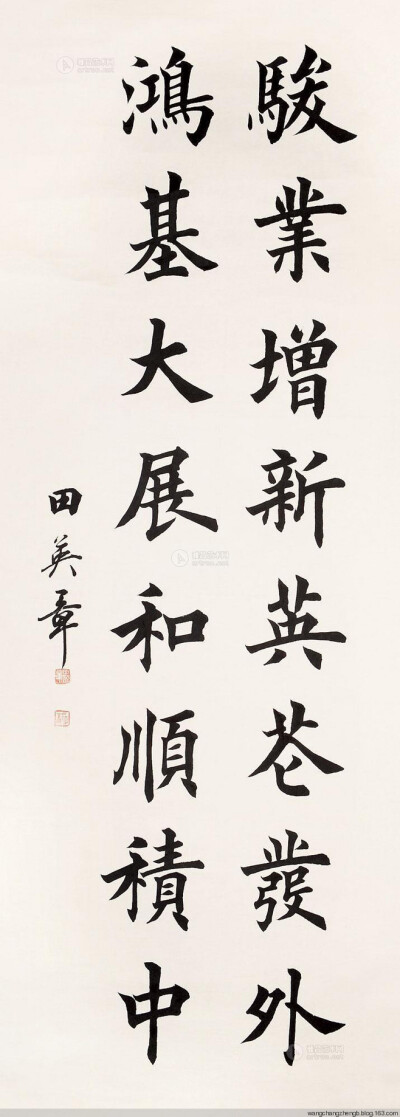 駿業增新英花發外
鴻基大展和順積中
田英章
wangchangzhengb.blog.163.com